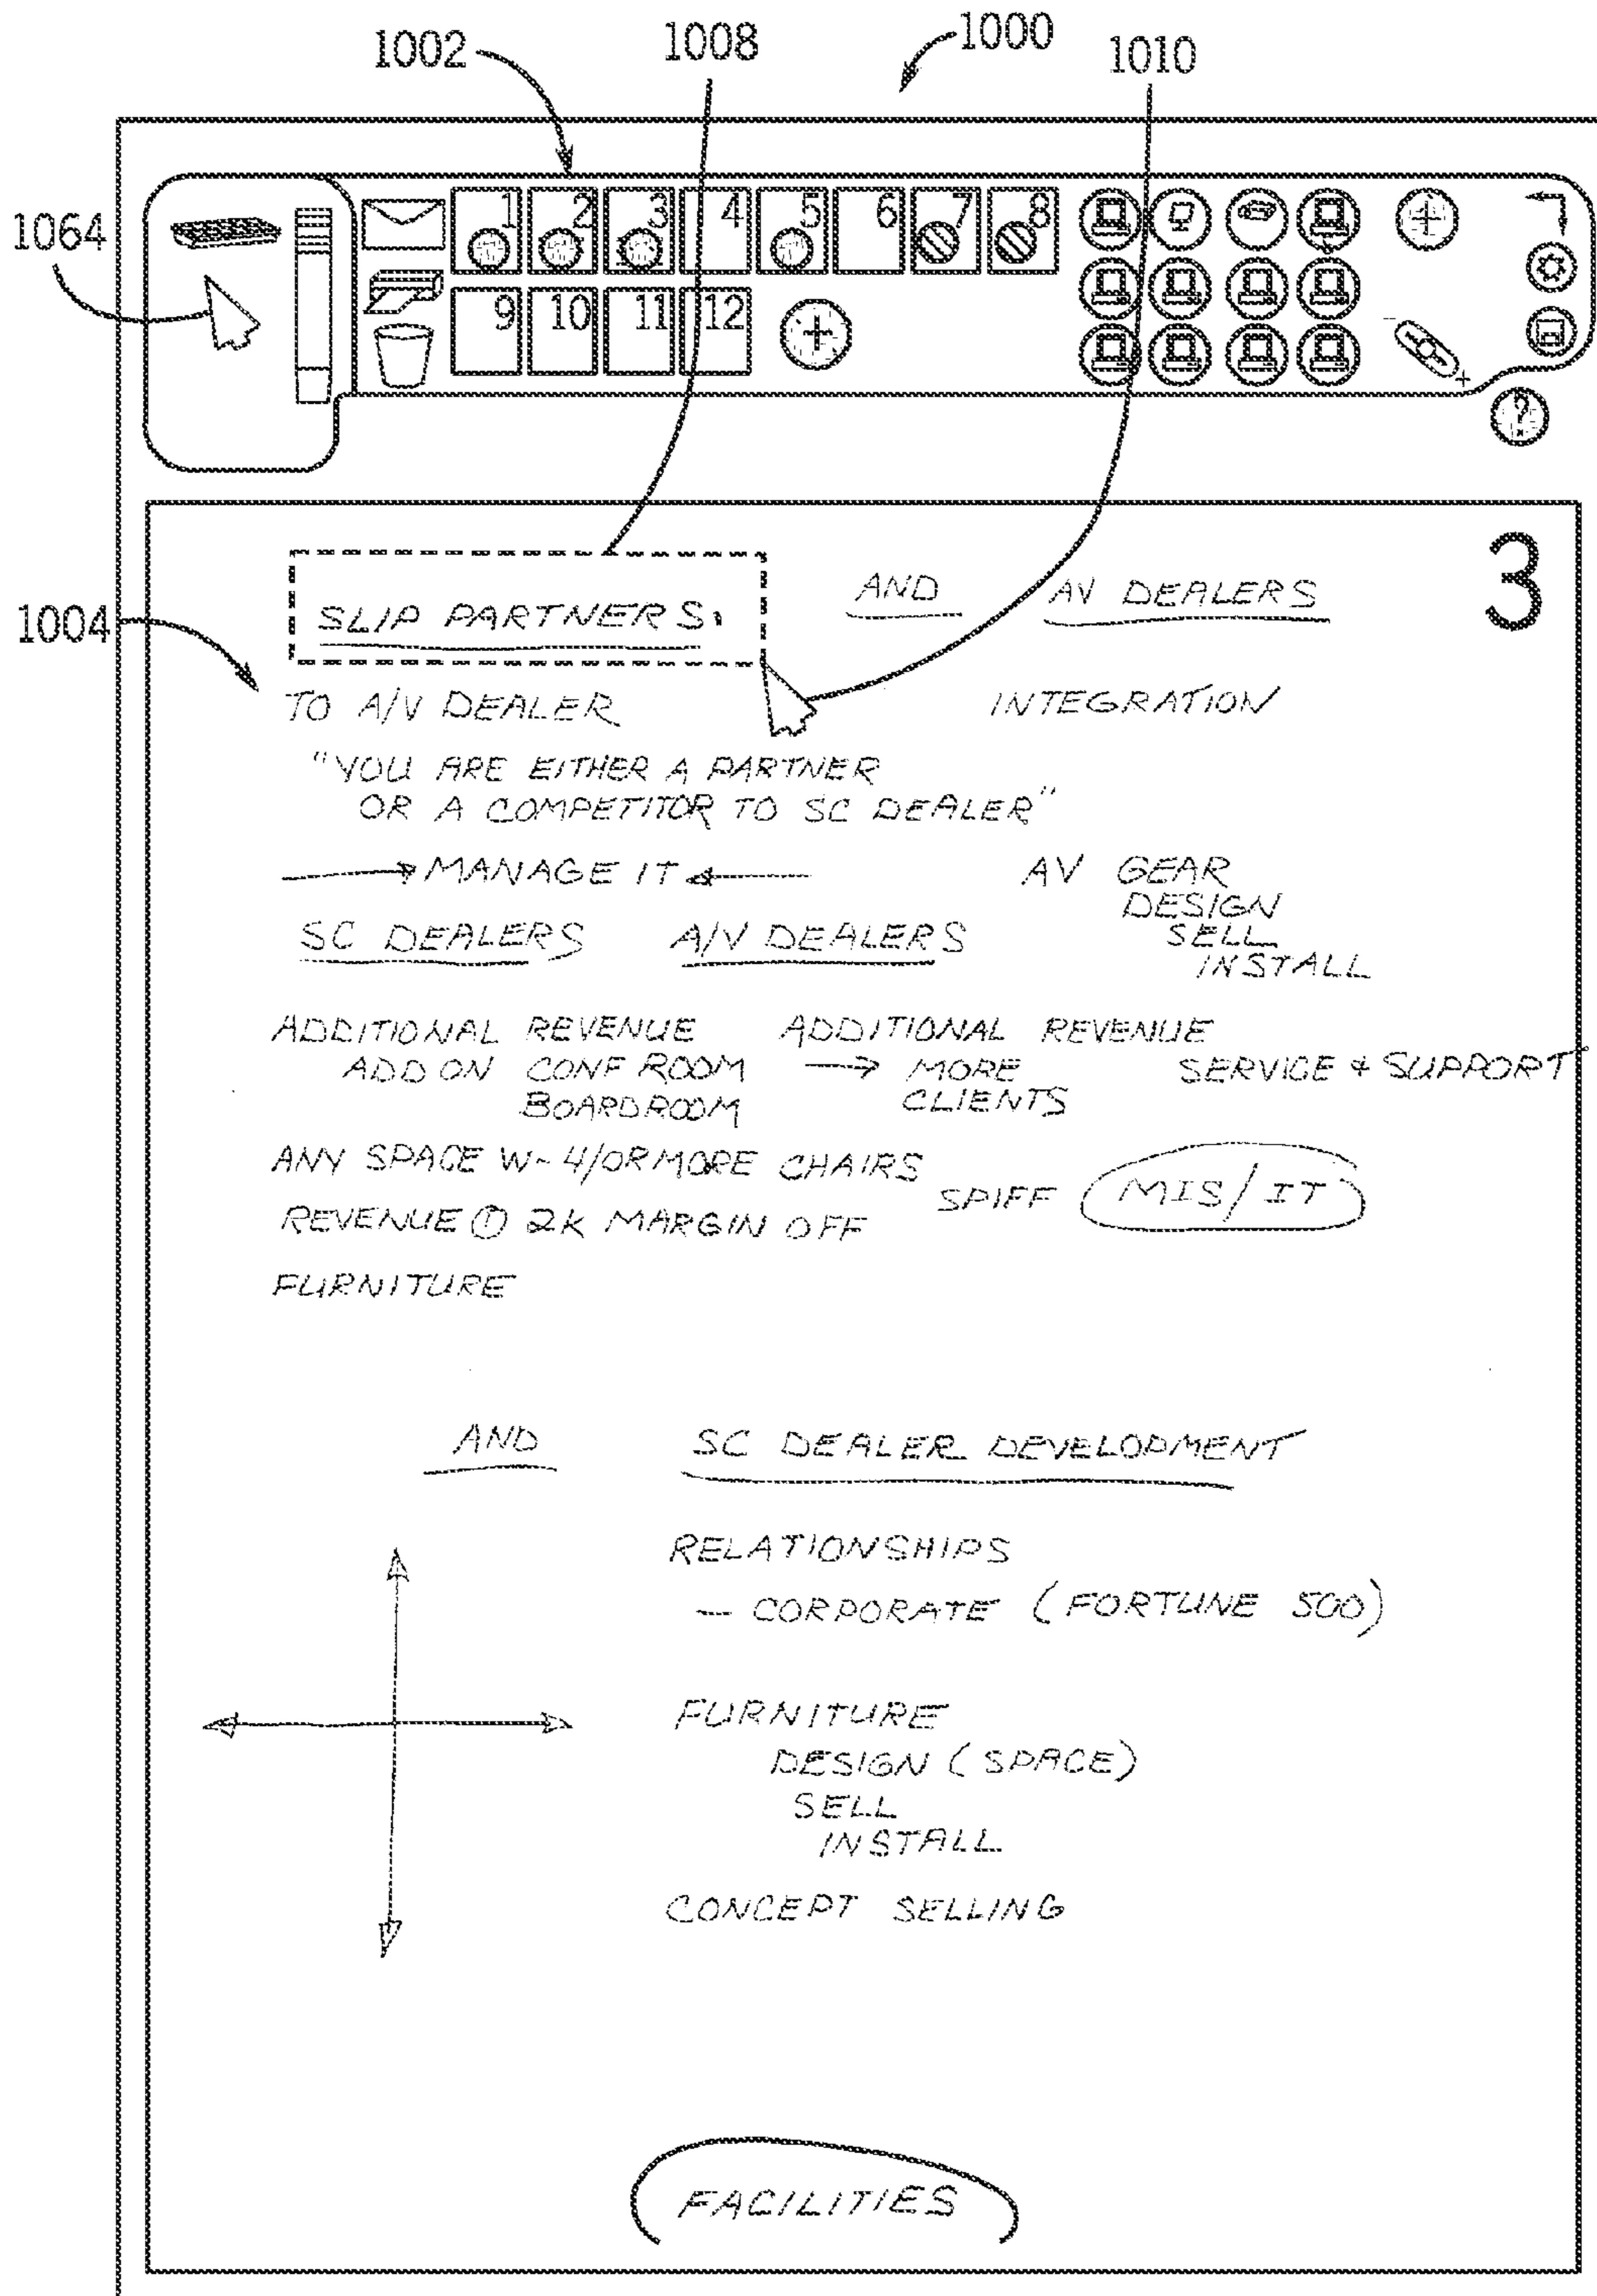 1002
1008
1000
1010
1064
1 2 3 4 5 6 7 8
9 10 11 12
?
3
1004
SLIP PARTNERS. AND AV DEALERS
TO A/V DEALER INTEGRATION
"YOU ARE EITHER A PARTNER
OR A COMPETITOR TO SC DEALER"
MANAGE IT AV GEAR
DESIGN
SC DEALERS A/V DEALERS SELL
INSTALL
ADDITIONAL REVENUE ADDITIONAL REVENUE
ADD ON CONF ROOM → MORE SERVICE & SUPPORT
BOARDROOM CLIENTS
ANY SPACE W~ 4/OR MORE CHAIRS
SPIFF MIS/IT
REVENUE ① 2K MARGIN OFF
FURNITURE
AND SC DEALER DEVELOPMENT
RELATIONSHIPS
— CORPORATE (FORTUNE 500)
FURNITURE
DESIGN (SPACE)
SELL
INSTALL
CONCEPT SELLING
FACILITIES